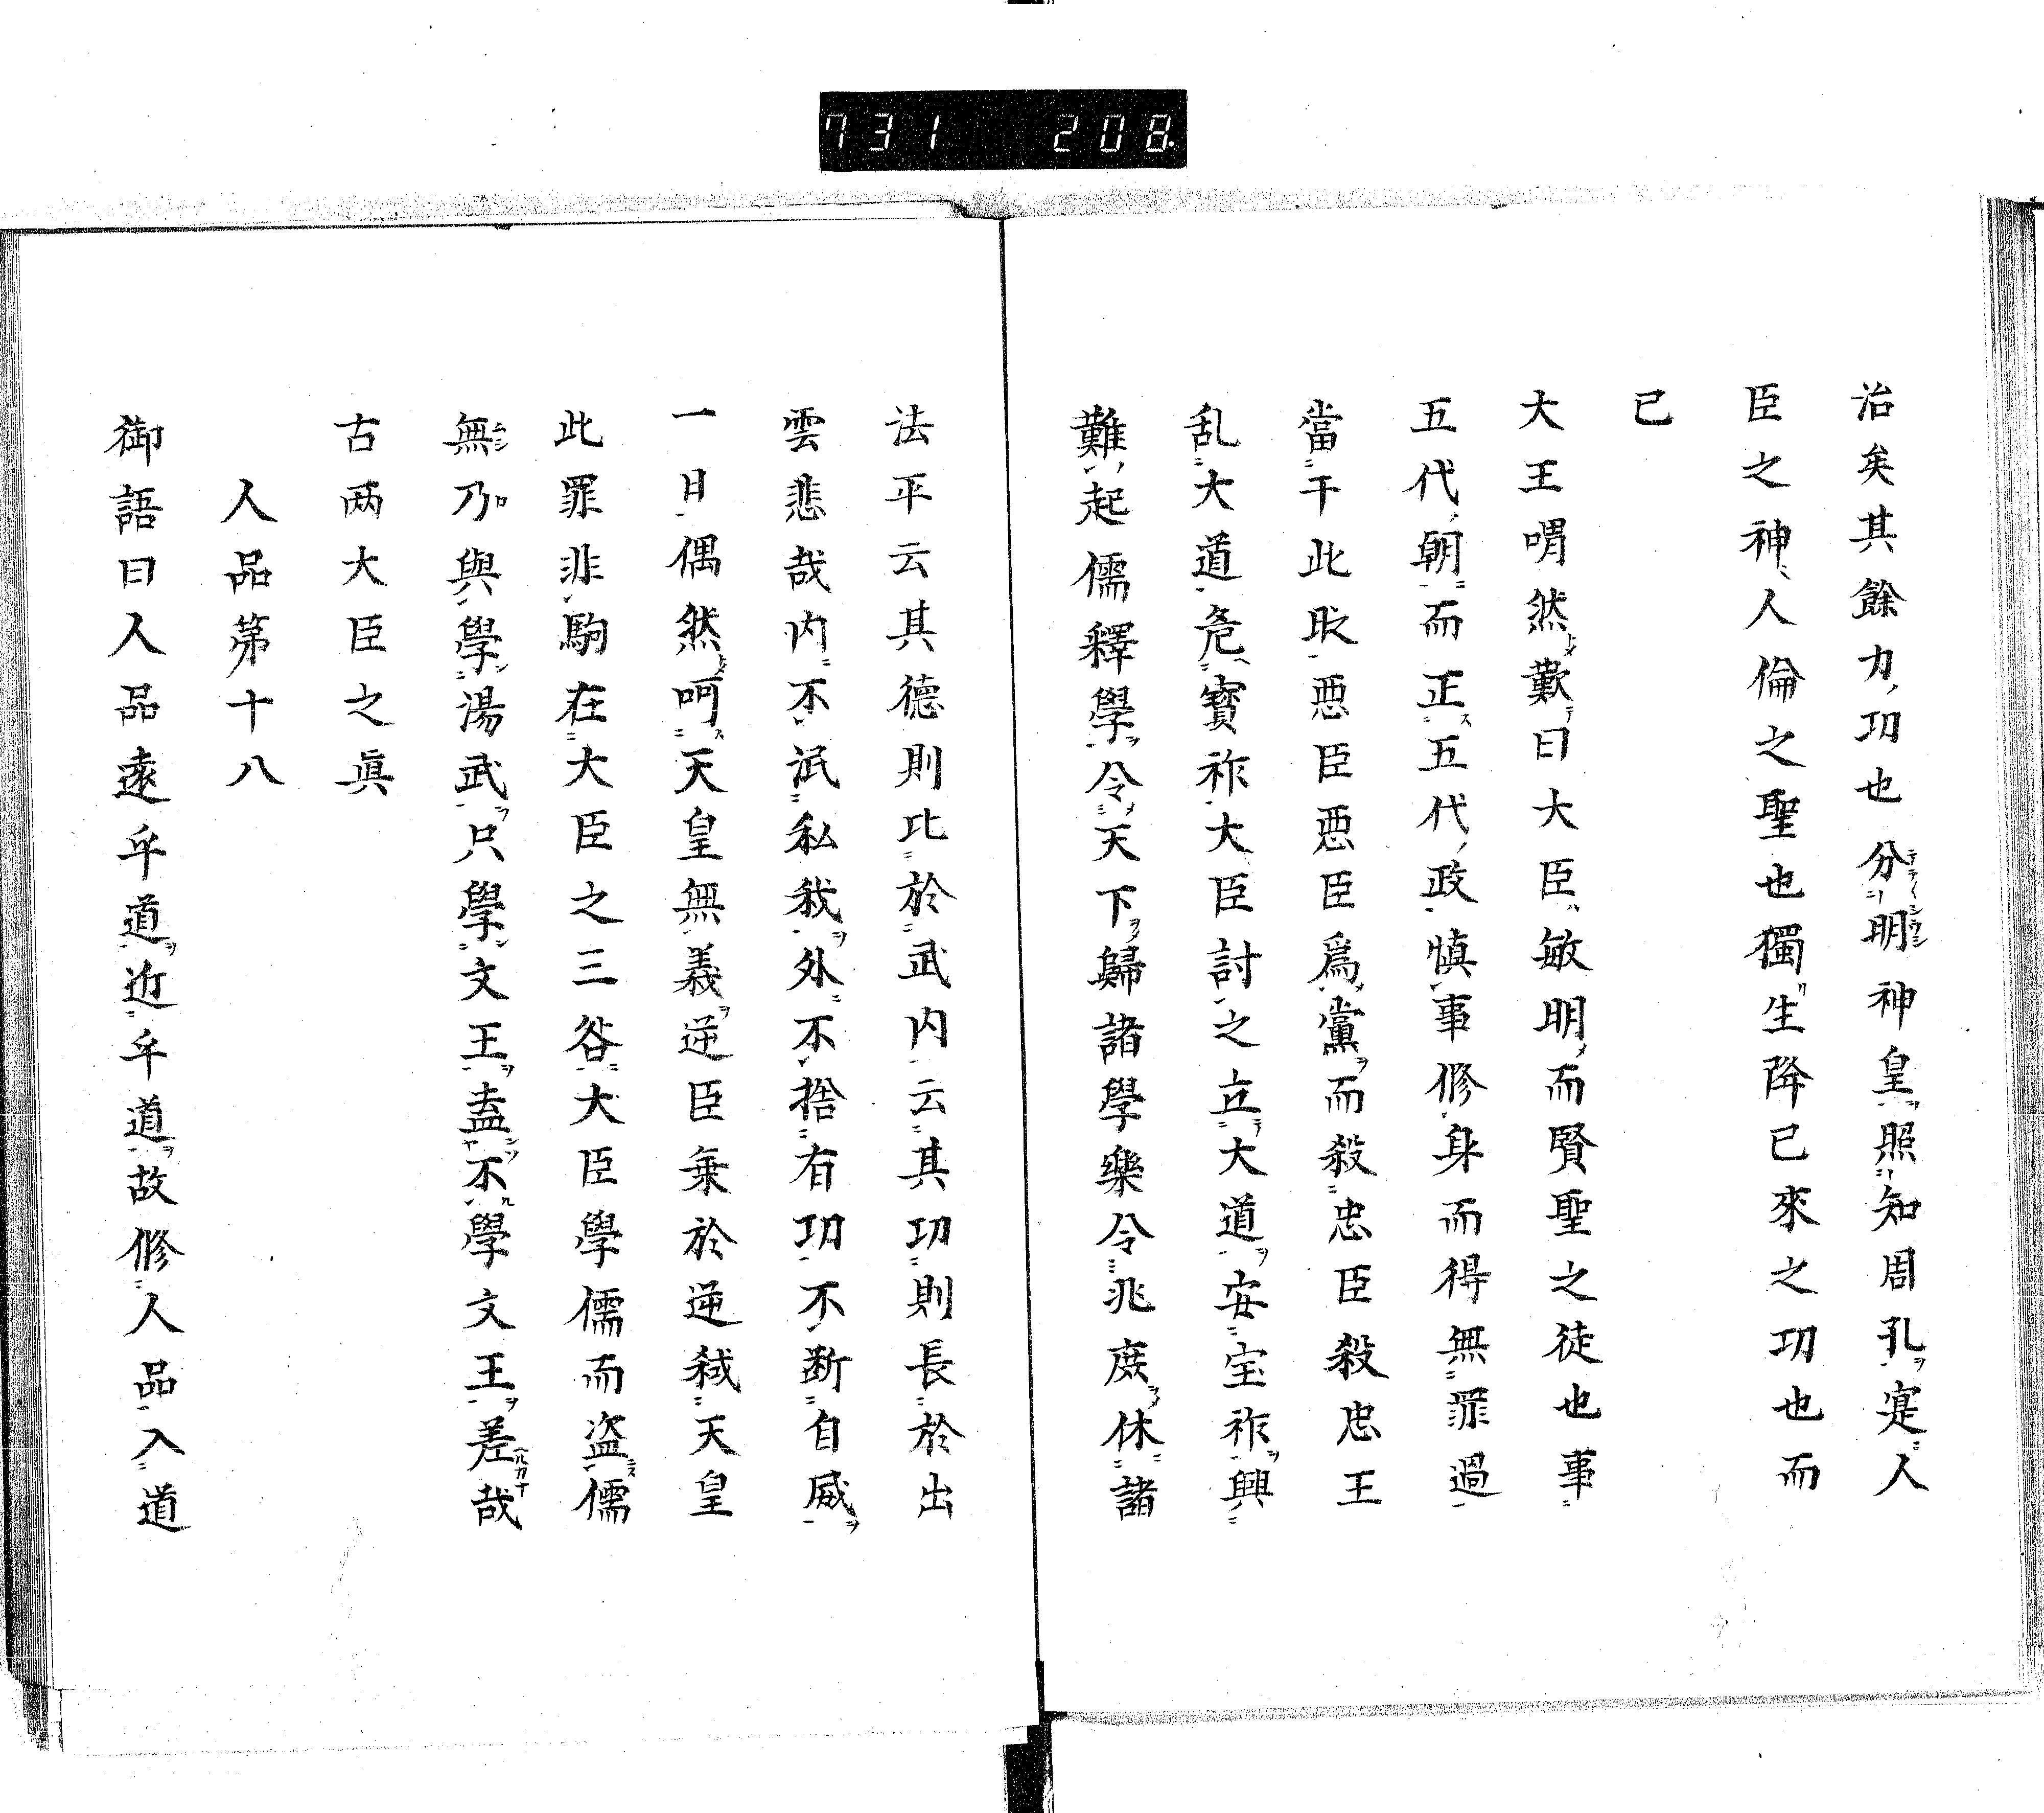 731 208
治矣其餘力功也分明神皇照知周孔寔人
臣之神人倫之聖也獨生降已來之功也而
已
大王喟然歎曰大臣敏明而賢聖之徒也事
五代朝而正五代政慎事修身而得無罪過
當于此㕝惡臣惡臣爲黨而殺忠臣殺忠王
乱大道危寶祚大臣討之立大道安宝祚興
難起儒釋學令天下歸諸學樂令兆庶休諸
法平云其德則比於武内云其功則長於出
雲悲哉内不泯私我外不捨有功不断自威
一日偶然呵天皇無義逆臣乗於逆弑天皇
此罪非駒在大臣之三咎大臣學儒而盗儒
無乃與學湯武只學文王盍不學文王差哉
古两大臣之眞
人品第十八
御語曰人品遠乎道近乎道故修人品入道